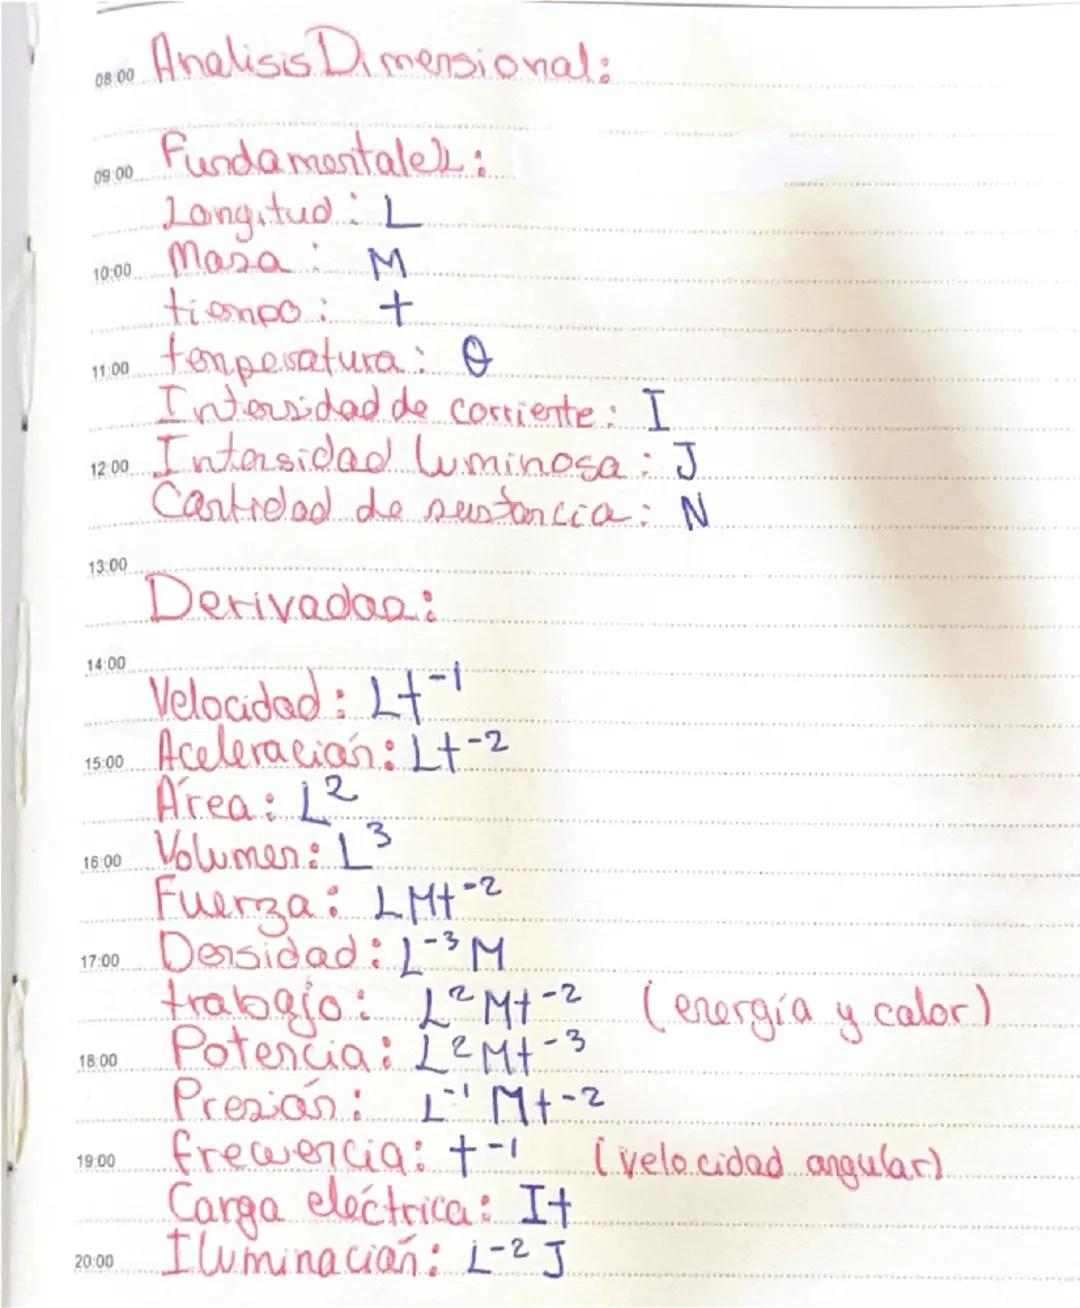 08:00 Analisis Dimensional:
09:00 Fundamentales:
Longitud: L
10:00 Masa: M
tiempo: t
11:00 temperatura: θ
Intensidad de corriente: I
12:00 Intensidad luminosa: J
Cantidad de sustancia: N
13:00
Derivadas:
14:00
Velocidad: Lt⁻¹
15:00 Aceleración: Lt⁻²
Área: L²
16:00 Volumen: L³
Fuerza: LMt⁻²
17:00 Densidad: L⁻³M
trabajo: L²Mt⁻² (energía y calor)
18:00 Potencia: L²Mt⁻³
Presión: L⁻¹Mt⁻²
19:00 frecuencia: t⁻¹ (velocidad angular)
Carga eléctrica: It
20:00 Iluminación: L⁻²J